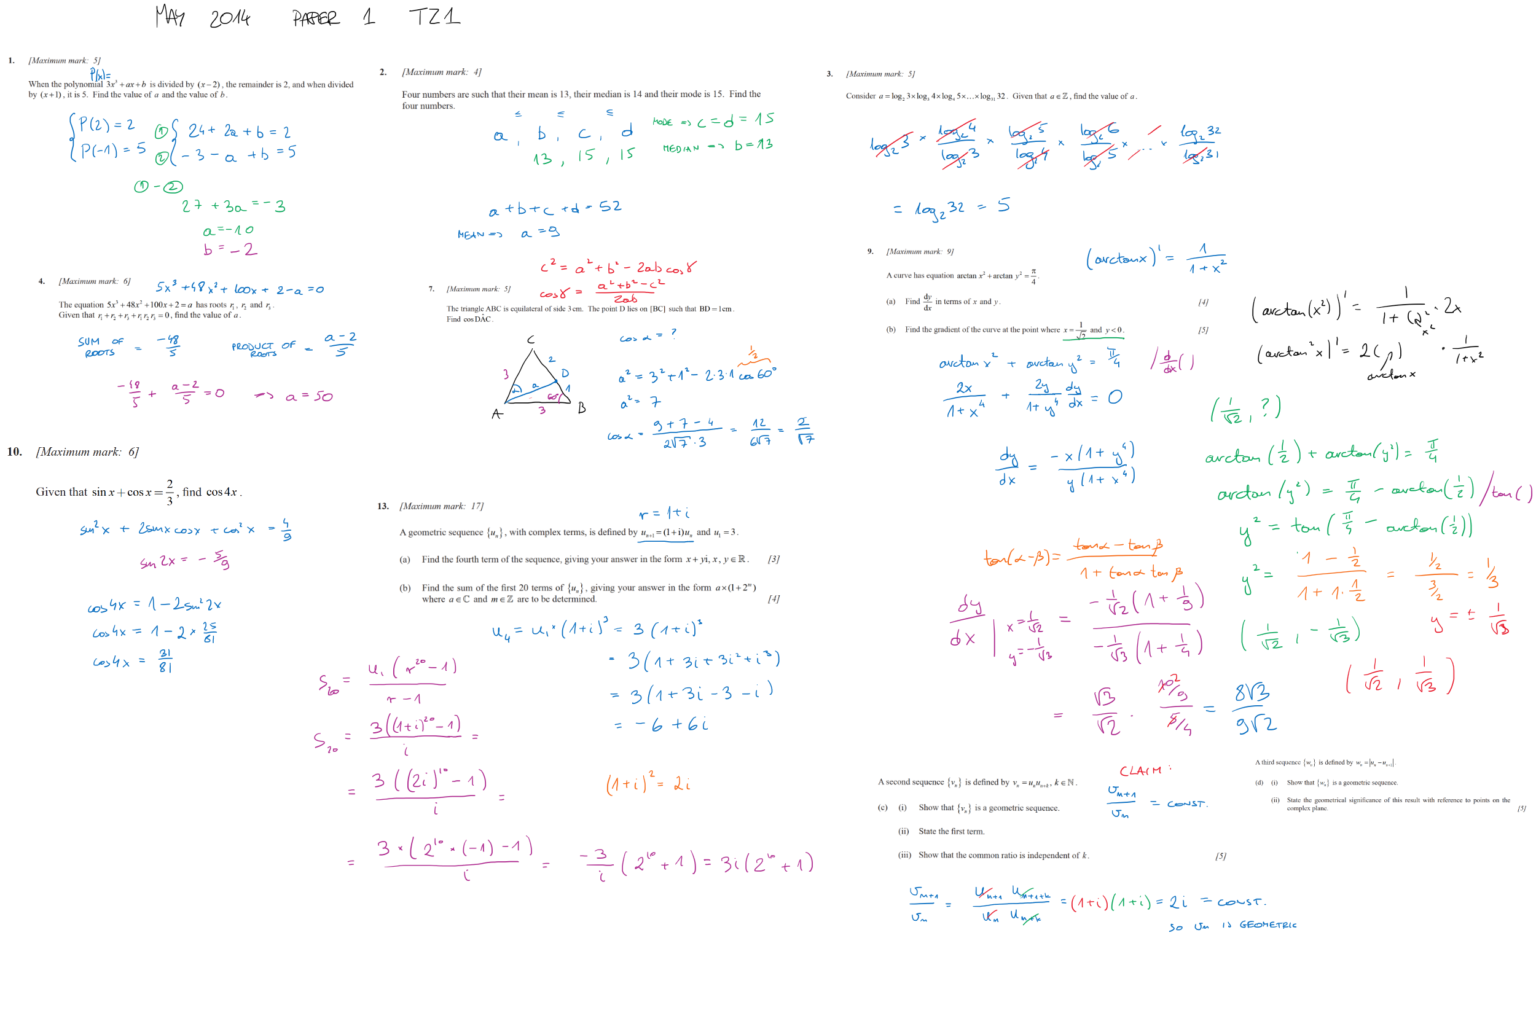 MAY 2014 PAPER 1 TZ1
1. [Maximum mark: 5]
P(x)=
When the polynomial 3x³ + ax + b is divided by (x − 2), the remainder is 2, and when divided
by (x + 1), it is 5. Find the value of a and the value of b.
P(2) = 2 ① 24 + 2a + b = 2
P(-1) = 5 ② -3 - a + b = 5
① - ②
27 + 3a = -3
a = -10
b = -2
2. [Maximum mark: 4]
Four numbers are such that their mean is 13, their median is 14 and their mode is 15. Find the
four numbers.
≤ ≤ ≤
a, b, c, d MODE => c = d = 15
13, 15, 15 MEDIAN => b = 13
a + b + c + d = 52
MEAN => a = 9
3. [Maximum mark: 5]
Consider a = log₂ 3 × log₃ 4 × log₄ 5 × ... × log₃₁ 32. Given that a ∈ ℤ, find the value of a.
log₂3 × log₂4/log₂3 × log₂5/log₂4 × log₂6/log₂5 × ... × log₂32/log₂31
= log₂32 = 5
4. [Maximum mark: 6]
5x³ + 48x² + 100x + 2 - a = 0
The equation 5x³ + 48x² + 100x + 2 = a has roots r₁, r₂ and r₃.
Given that r₁ + r₂ + r₃ + r₁r₂r₃ = 0, find the value of a.
SUM OF ROOTS = -48/5 PRODUCT OF ROOTS = a-2/5
-48/5 + a-2/5 = 0 => a = 50
c² = a² + b² - 2ab cosγ
cosγ = a²+b²-c²/2ab
7. [Maximum mark: 5]
The triangle ABC is equilateral of side 3 cm. The point D lies on [BC] such that BD = 1 cm.
Find cos DÂC.
C
3 2
D
a 1
α 60°
A 3 B
cos α = ?
1/2
a² = 3² + 1² - 2·3·1 cos 60°
a² = 7
cos α = 9+7-4/2√7·3 = 12/6√7 = 2/√7
9. [Maximum mark: 9]
(arctanx)' = 1/1+x²
A curve has equation arctan x² + arctan y² = π/4.
(a) Find dy/dx in terms of x and y. [4]
(b) Find the gradient of the curve at the point where x = 1/√2 and y < 0. [5]
(arctan(x²))' = 1/1+(x²)² · 2x
(arctan²x)' = 2( ) · 1/1+x²
arctanx
arctan x² + arctan y² = π/4 / d/dx ( )
2x/1+x⁴ + 2y/1+y⁴ dy/dx = 0
dy/dx = -x(1+y⁴)/y(1+x⁴)
(1/√2, ?)
arctan(1/2) + arctan(y²) = π/4
arctan(y²) = π/4 - arctan(1/2) / tan( )
y² = tan(π/4 - arctan(1/2))
tan(α-β) = tanα - tanβ/1 + tanα tanβ
y² = 1 - 1/2/1 + 1·1/2 = 1/2/3/2 = 1/3
y = ± 1/√3
dy/dx | x=1/√2 y=-1/√3 = -1/√2(1+1/9)/-1/√3(1+1/4)
(1/√2, -1/√3)
(1/√2, 1/√3)
= √3/√2 · 10/9/5/4 = 8√3/9√2
10. [Maximum mark: 6]
Given that sin x + cos x = 2/3, find cos 4x.
sin²x + 2sinx cosx + cos²x = 4/9
sin2x = -5/9
cos4x = 1 - 2sin²2x
cos4x = 1 - 2 × 25/81
cos4x = 31/81
13. [Maximum mark: 17]
r = 1+i
A geometric sequence {uₙ}, with complex terms, is defined by uₙ₊₁ = (1 + i)uₙ and u₁ = 3.
(a) Find the fourth term of the sequence, giving your answer in the form x + yi, x, y ∈ ℝ. [3]
(b) Find the sum of the first 20 terms of {uₙ}, giving your answer in the form a × (1 + 2ᵐ)
where a ∈ ℂ and m ∈ ℤ are to be determined. [4]
u₄ = u₁ × (1+i)³ = 3(1+i)³
= 3(1 + 3i + 3i² + i³)
= 3(1 + 3i - 3 - i)
= -6 + 6i
S₂₀ = u₁(r²⁰-1)/r-1
S₂₀ = 3((1+i)²⁰-1)/i =
= 3((2i)¹⁰-1)/i =
(1+i)² = 2i
= 3×(2¹⁰×(-1)-1)/i = -3/i (2¹⁰+1) = 3i(2¹⁰+1)
A second sequence {vₙ} is defined by vₙ = uₙuₙ₊ₖ, k ∈ ℕ.
(c) (i) Show that {vₙ} is a geometric sequence.
(ii) State the first term.
(iii) Show that the common ratio is independent of k. [5]
CLAIM:
vₙ₊₁/vₙ = CONST.
A third sequence {wₙ} is defined by wₙ = |uₙ − uₙ₊₁|.
(d) (i) Show that {wₙ} is a geometric sequence.
(ii) State the geometrical significance of this result with reference to points on the
complex plane. [5]
vₙ₊₁/vₙ = uₙ₊₁ uₙ₊₁₊ₖ/uₙ uₙ₊ₖ = (1+i)(1+i) = 2i = CONST.
SO vₙ IS GEOMETRIC